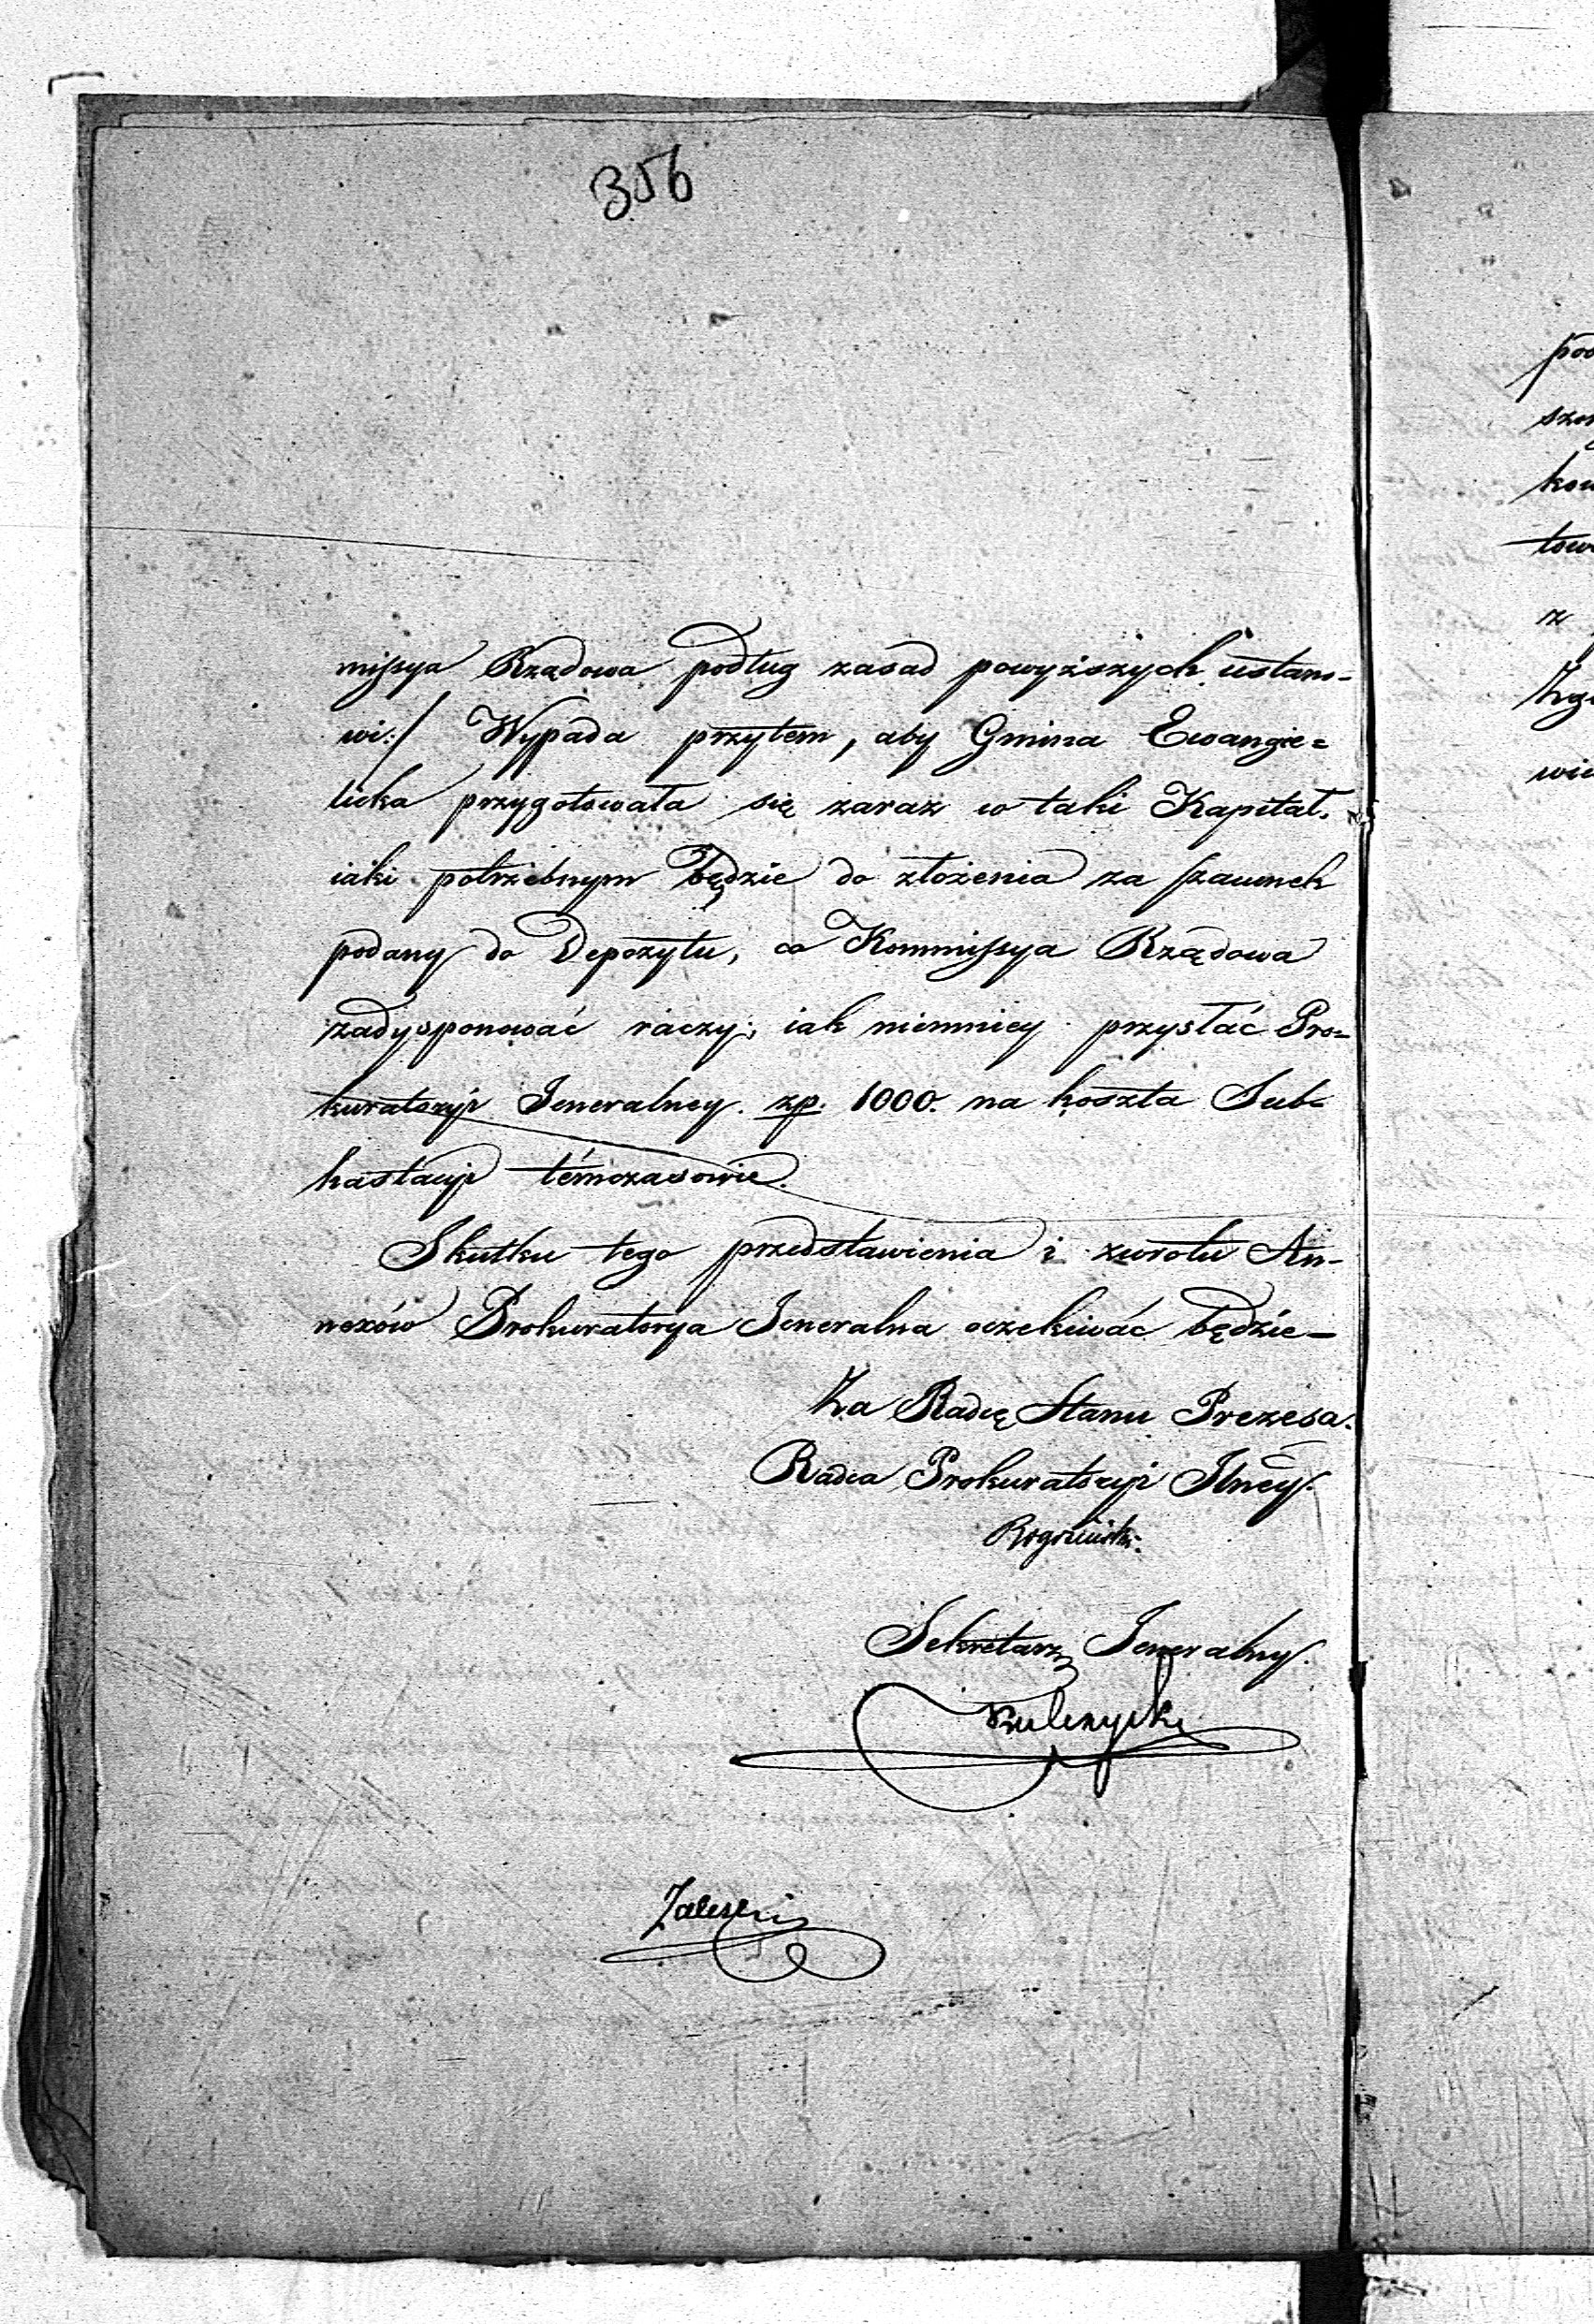 356
missya Rządowa podług zasad powyższych ustano-
wi:/ Wypada przytem, aby Gmina Ewangie=
licka przygotowała się zaraz w taki Kapitał,
iaki potrzebnym będzie do złożenia za szacunek
podany do Depozytu, co Kommissya Rządowa
zadysponować raczy; iak niemniey przysłać Pro=
kuratoryi Jeneralney zp. 1000. na koszta Sub=
hastacyi témczasowie.
Skutku tego przedstawienia i zwrotu An-
nexów Prokuratorya Jeneralna oczekiwać będzie—
Za Radcę Stanu Prezesa.
Radca Prokuratoryi Jlnéy.
Sekretarz Jeneralny.
Zaleski
pod
szo
kow
tow
z
Zg
wie